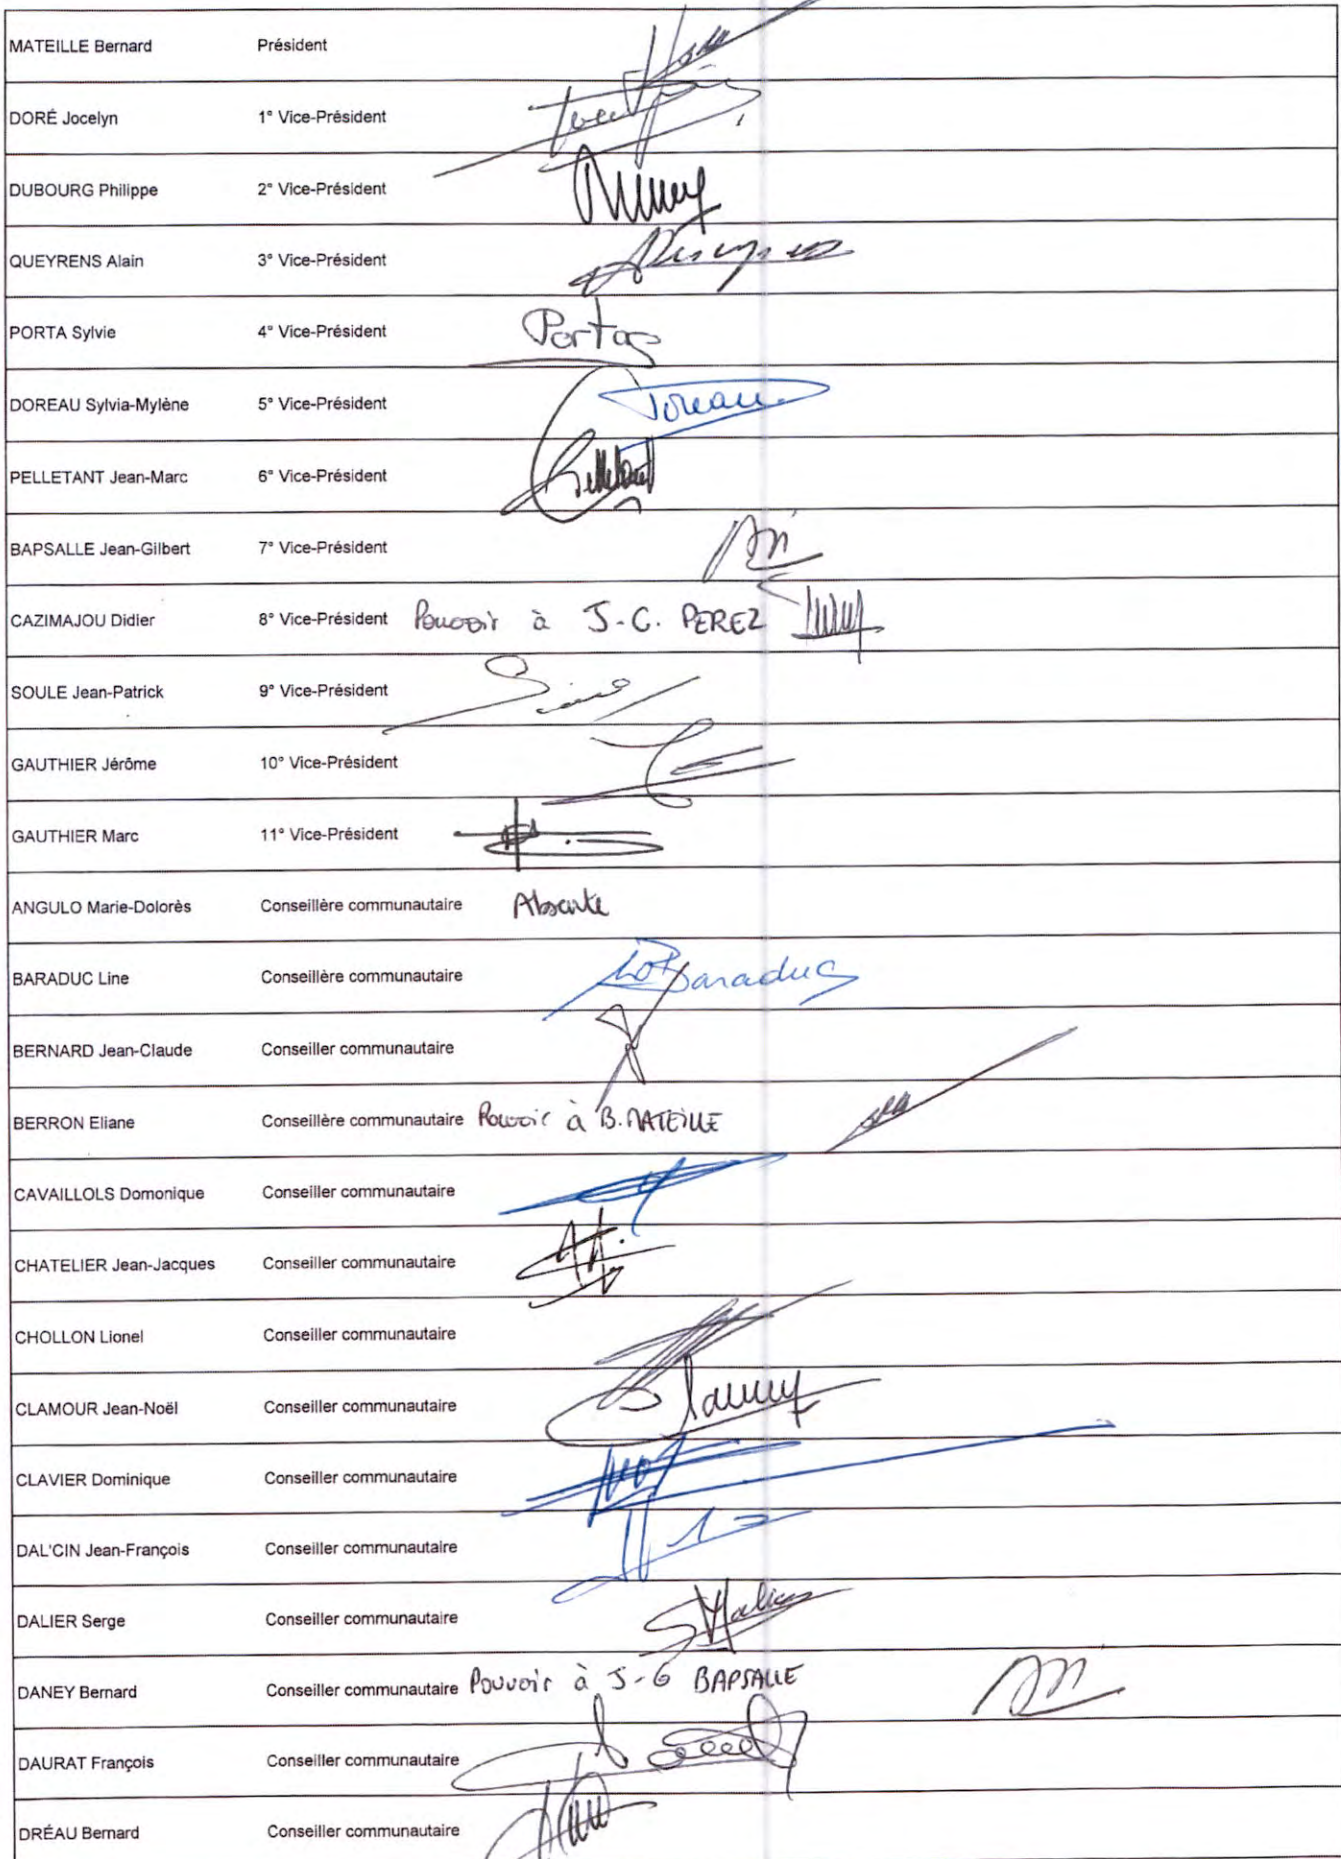 MATEILLE Bernard Président
DORÉ Jocelyn 1° Vice-Président
DUBOURG Philippe 2° Vice-Président
QUEYRENS Alain 3° Vice-Président
PORTA Sylvie 4° Vice-Président Porta
DOREAU Sylvia-Mylène 5° Vice-Président Doreau
PELLETANT Jean-Marc 6° Vice-Président Pelletant
BAPSALLE Jean-Gilbert 7° Vice-Président
CAZIMAJOU Didier 8° Vice-Président Pouvoir à J-C. PEREZ
SOULE Jean-Patrick 9° Vice-Président
GAUTHIER Jérôme 10° Vice-Président
GAUTHIER Marc 11° Vice-Président
ANGULO Marie-Dolorès Conseillère communautaire Absente
BARADUC Line Conseillère communautaire Baraduc
BERNARD Jean-Claude Conseiller communautaire
BERRON Eliane Conseillère communautaire Pouvoir à B. MATEILLE
CAVAILLOLS Domonique Conseiller communautaire
CHATELIER Jean-Jacques Conseiller communautaire
CHOLLON Lionel Conseiller communautaire
CLAMOUR Jean-Noël Conseiller communautaire
CLAVIER Dominique Conseiller communautaire
DAL'CIN Jean-François Conseiller communautaire
DALIER Serge Conseiller communautaire
DANEY Bernard Conseiller communautaire Pouvoir à J-G BAPSALLE
DAURAT François Conseiller communautaire
DRÉAU Bernard Conseiller communautaire